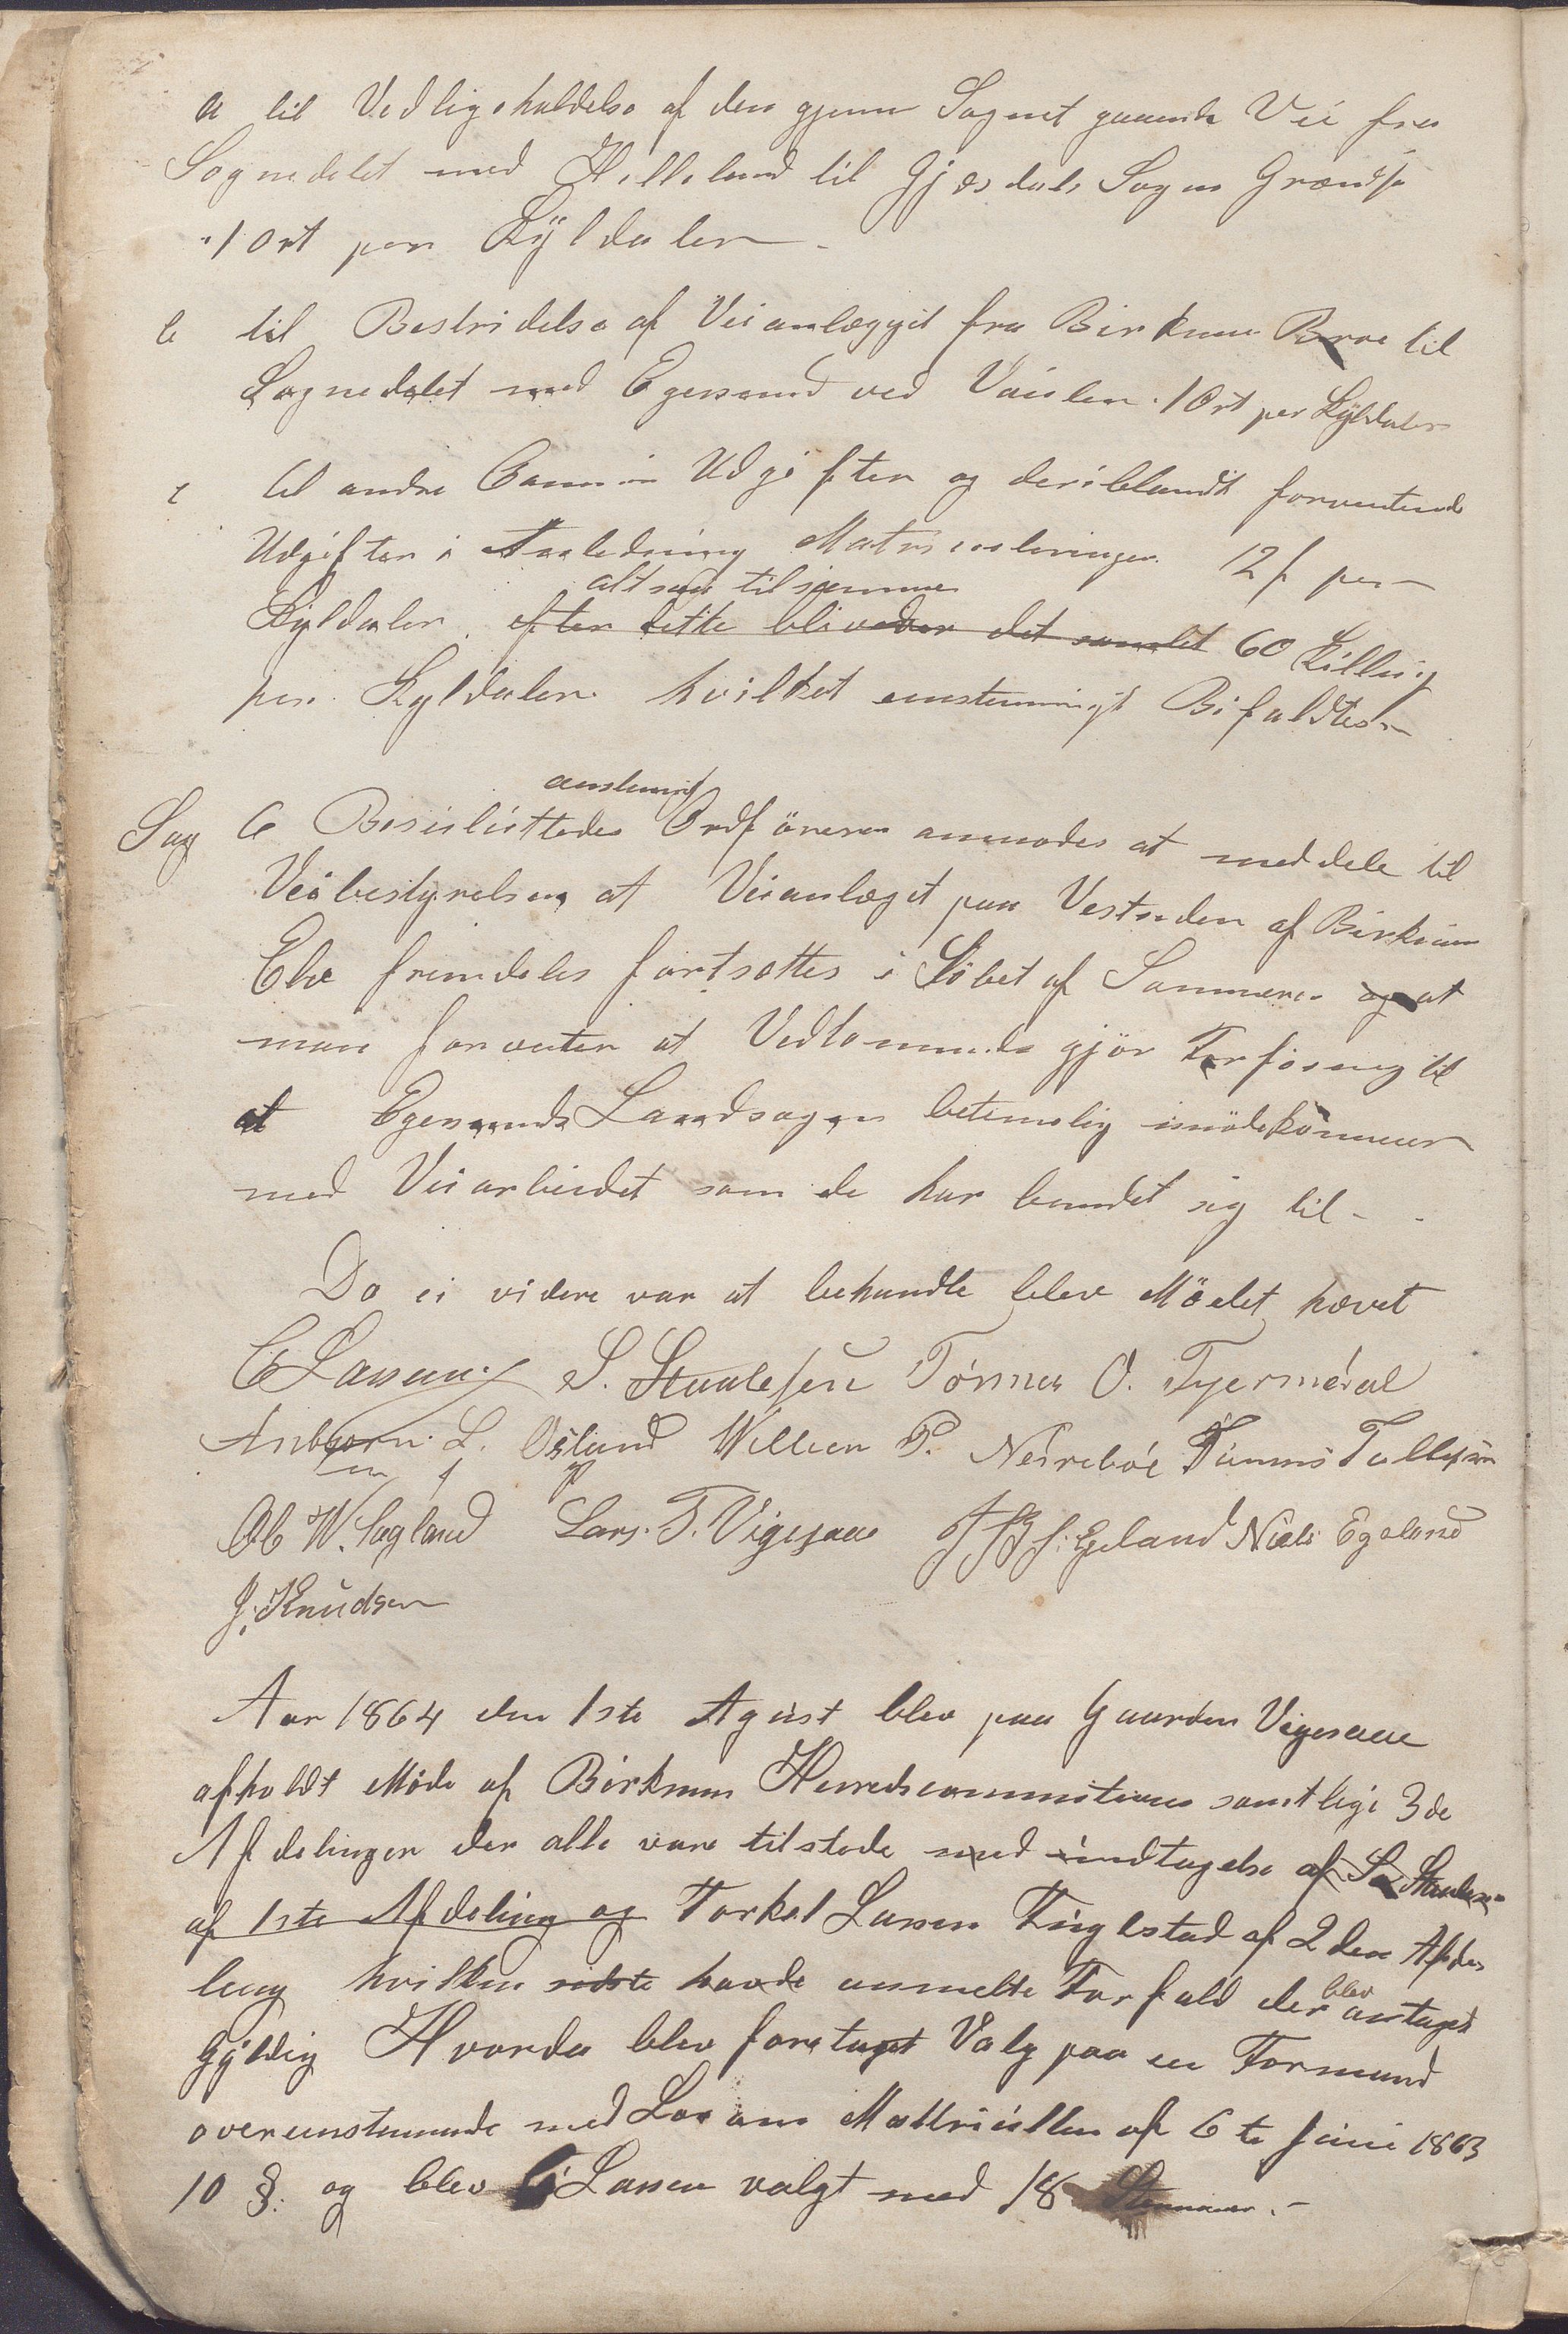 a til Vedligeholdelse af den gjennem Sognet gaaende Vei fra
Sognedelet med Helleland til Gjæsdals Sogns Grændse
1 Ort per Skÿldaler
b til Bestridelse af Veianlægget fra Birkrem Broe til
Sognedelet med Egersund ved 1 Ort per Skÿldaler
c til andre Udgifter og deriblandt forventende
Udgifter i Anledning Matriculeringen 12 s per
altsaa tilsammen
Skyldaler. efter dette bliver det samlet 60 Skilling
per Skyldaler hvilket eenstemmigt Bifaldtes
eenstemmigt
Sag 6 Besluttedes Ordføreren anmodes at meddele til
Veibestyrelsen at Veianlæget paa Vestsiden af Birkrem
Elv fremdeles fortsættes i Løbet af Sommeren og at
man forventer at Vedkommende gjør Forføining til
at Egersunds Landsogn betimelig imødekommer
med Veiarbeidet som de har bundet sig til
Da ei videre var at behandle blev Mödet hævet
C Lassen S. Staalesen Tönnes O. Tjermdal
Anbjørn L. Osland Willum P. Nedrebøe Tønnes Tollefsen
Ole W. Sagland Lars T. Vigesaae Egeland Niels Egeland
J. Knudsen
Aar 1864 den 1ste Agust blev paa Gaarden Vigesaae
afholdt Møde af Birkrem Herredscommitteens samtlige 3de
Afdelinger der alle vare tilstede med undtagelse af S. Staalesen
af 1ste Afdeling og Torkel Lassen Tinglstad af 2den Afde
ling hvilken sidste havde anmeldte Forfald der blev antaget
Gÿldig Hvorda blev foretaget Valg paa en Formand
overeenstemmende med Lov om Mattriculllen af 6te Juni 1863
10 §. og blev C Lassen valgt med 18 Stemmer.